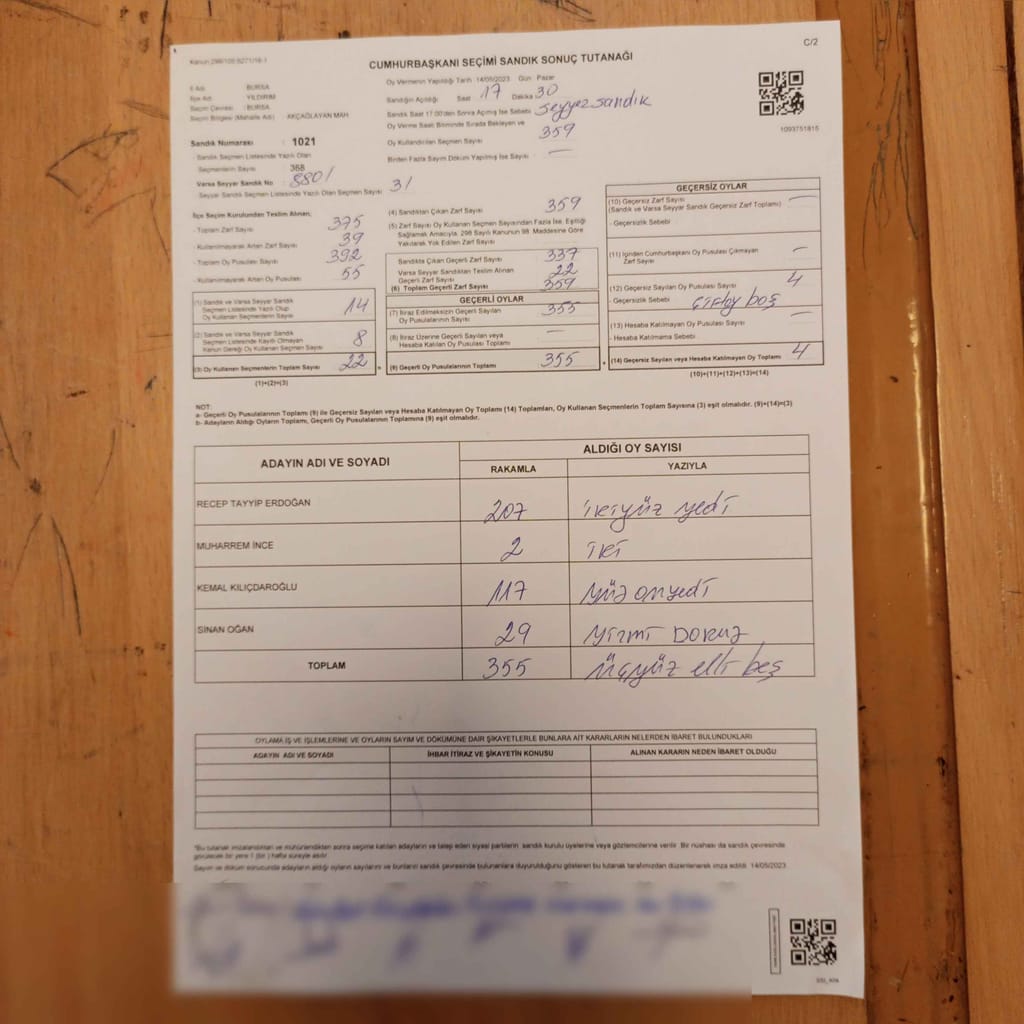 Kanun:298/105 6271/16-1
C/2
CUMHURBAŞKANI SEÇİMİ SANDIK SONUÇ TUTANAĞI
İl Adı : BURSA
İlçe Adı : YILDIRIM
Seçim Çevresi : BURSA
Seçim Bölgesi (Mahalle Adı) : AKÇAĞLAYAN MAH
Sandık Numarası : 1021
Sandık Seçmen Listesinde Yazılı Olan
Seçmenlerin Sayısı : 368
Varsa Seyyar Sandık No : 8801
Seyyar Sandık Seçmen Listesinde Yazılı Olan Seçmen Sayısı 31
Oy Vermenin Yapıldığı Tarih : 14/05/2023 Gün : Pazar
Sandığın Açıldığı Saat 17 Dakika 30
Sandık Saat 17:00'den Sonra Açılmış İse Sebebi Seyyar sandık
Oy Verme Saati Bitiminde Sırada Bekleyen ve
Oy Kullandırılan Seçmen Sayısı 359
Birden Fazla Sayım Döküm Yapılmış İse Sayısı —
1093751815
İlçe Seçim Kurulundan Teslim Alınan;
- Toplam Zarf Sayısı 375
- Kullanılmayarak Artan Zarf Sayısı 39
- Toplam Oy Pusulası Sayısı 392
- Kullanılmayarak Artan Oy Pusulası 55
(1) Sandık ve Varsa Seyyar Sandık
Seçmen Listesinde Yazılı Olup
Oy Kullanan Seçmenlerin Sayısı 14
(2) Sandık ve Varsa Seyyar Sandık
Seçmen Listesinde Kayıtlı Olmayan
Kanun Gereği Oy Kullanan Seçmen Sayısı 8
(3) Oy Kullanan Seçmenlerin Toplam Sayısı 22
(1)+(2)=(3)
(4) Sandıktan Çıkan Zarf Sayısı 359
(5) Zarf Sayısı Oy Kullanan Seçmen Sayısından Fazla İse, Eşitliği
Sağlamak Amacıyla, 298 Sayılı Kanunun 98. Maddesine Göre
Yakılarak Yok Edilen Zarf Sayısı
Sandıkta Çıkan Geçerli Zarf Sayısı 337
Varsa Seyyar Sandıktan Teslim Alınan
Geçerli Zarf Sayısı 22
(6) Toplam Geçerli Zarf Sayısı 359
GEÇERLİ OYLAR
(7) İtiraz Edilmeksizin Geçerli Sayılan
Oy Pusulasının Sayısı 355
(8) İtiraz Üzerine Geçerli Sayılan veya
Hesaba Katılan Oy Pusulası Toplamı —
(9) Geçerli Oy Pusulalarının Toplamı 355
GEÇERSİZ OYLAR
(10) Geçersiz Zarf Sayısı —
(Sandık ve Varsa Seyyar Sandık Geçersiz Zarf Toplamı)
- Geçersizlik Sebebi
(11) İçinden Cumhurbaşkanı Oy Pusulası Çıkmayan
Zarf Sayısı —
(12) Geçersiz Sayılan Oy Pusulası Sayısı 4
- Geçersizlik Sebebi boş
(13) Hesaba Katılmayan Oy Pusulası Sayısı —
- Hesaba Katılmama Sebebi
(14) Geçersiz Sayılan veya Hesaba Katılmayan Oy Toplamı 4
(10)+(11)+(12)+(13)=(14)
NOT:
a- Geçerli Oy Pusulalarının Toplamı (9) ile Geçersiz Sayılan veya Hesaba Katılmayan Oy Toplamı (14) Toplamları, Oy Kullanan Seçmenlerin Toplam Sayısına (3) eşit olmalıdır. (9)+(14)=(3)
b- Adayların Aldığı Oyların Toplamı, Geçerli Oy Pusulalarının Toplamına (9) eşit olmalıdır.
ADAYIN ADI VE SOYADI
ALDIĞI OY SAYISI
RAKAMLA YAZIYLA
RECEP TAYYİP ERDOĞAN 207 ikiyüz yedi
MUHARREM İNCE 2 iki
KEMAL KILIÇDAROĞLU 117 yüz onyedi
SİNAN OĞAN 29 yirmi Dokuz
TOPLAM 355 üçyüz elli beş
OYLAMA İŞ VE İŞLEMLERİNE VE OYLARIN SAYIM VE DÖKÜMÜNE DAİR ŞİKAYETLERLE BUNLARA AİT KARARLARIN NELERDEN İBARET BULUNDUKLARI
ADAYIN ADI VE SOYADI İHBAR İTİRAZ VE ŞİKAYETİN KONUSU ALINAN KARARIN NEDEN İBARET OLDUĞU
*Bu tutanak imzalandıktan ve mühürlendikten sonra seçime katılan adayların ve talep eden siyasi partilerin sandık kurulu üyelerine veya gözlemcilerine verilir. Bir nüshası da sandık çevresinde
görülecek bir yere 1 (bir) hafta süreyle asılır.
Sayım ve döküm sonucunda adayların aldığı oyların sayılarını ve bunların sandık çevresinde bulunanlara duyurulduğunu gösteren bu tutanak tarafımızdan düzenlenerek imza edildi. 14/05/2023